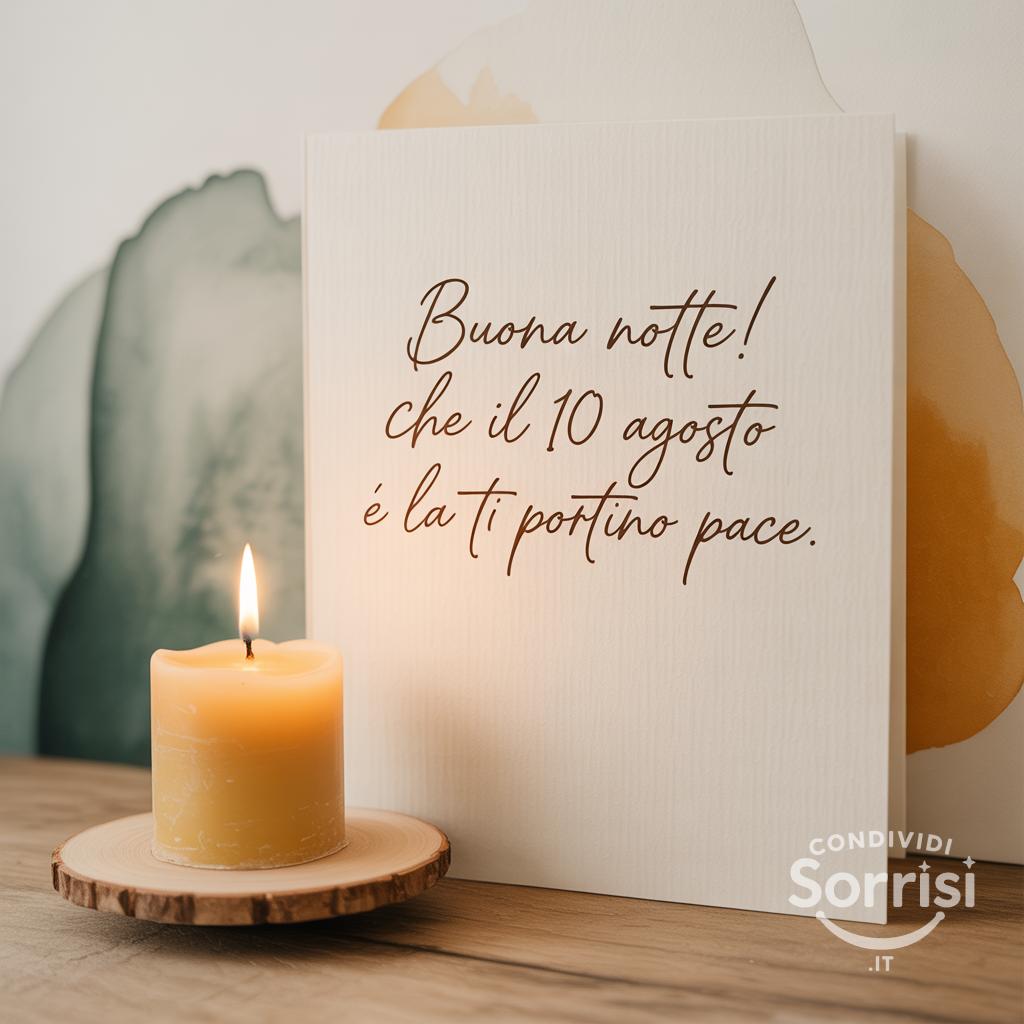 Buona notte!
che il 10 agosto
é la ti portino pace.
CONDIVIDI
Sorrisi
.IT